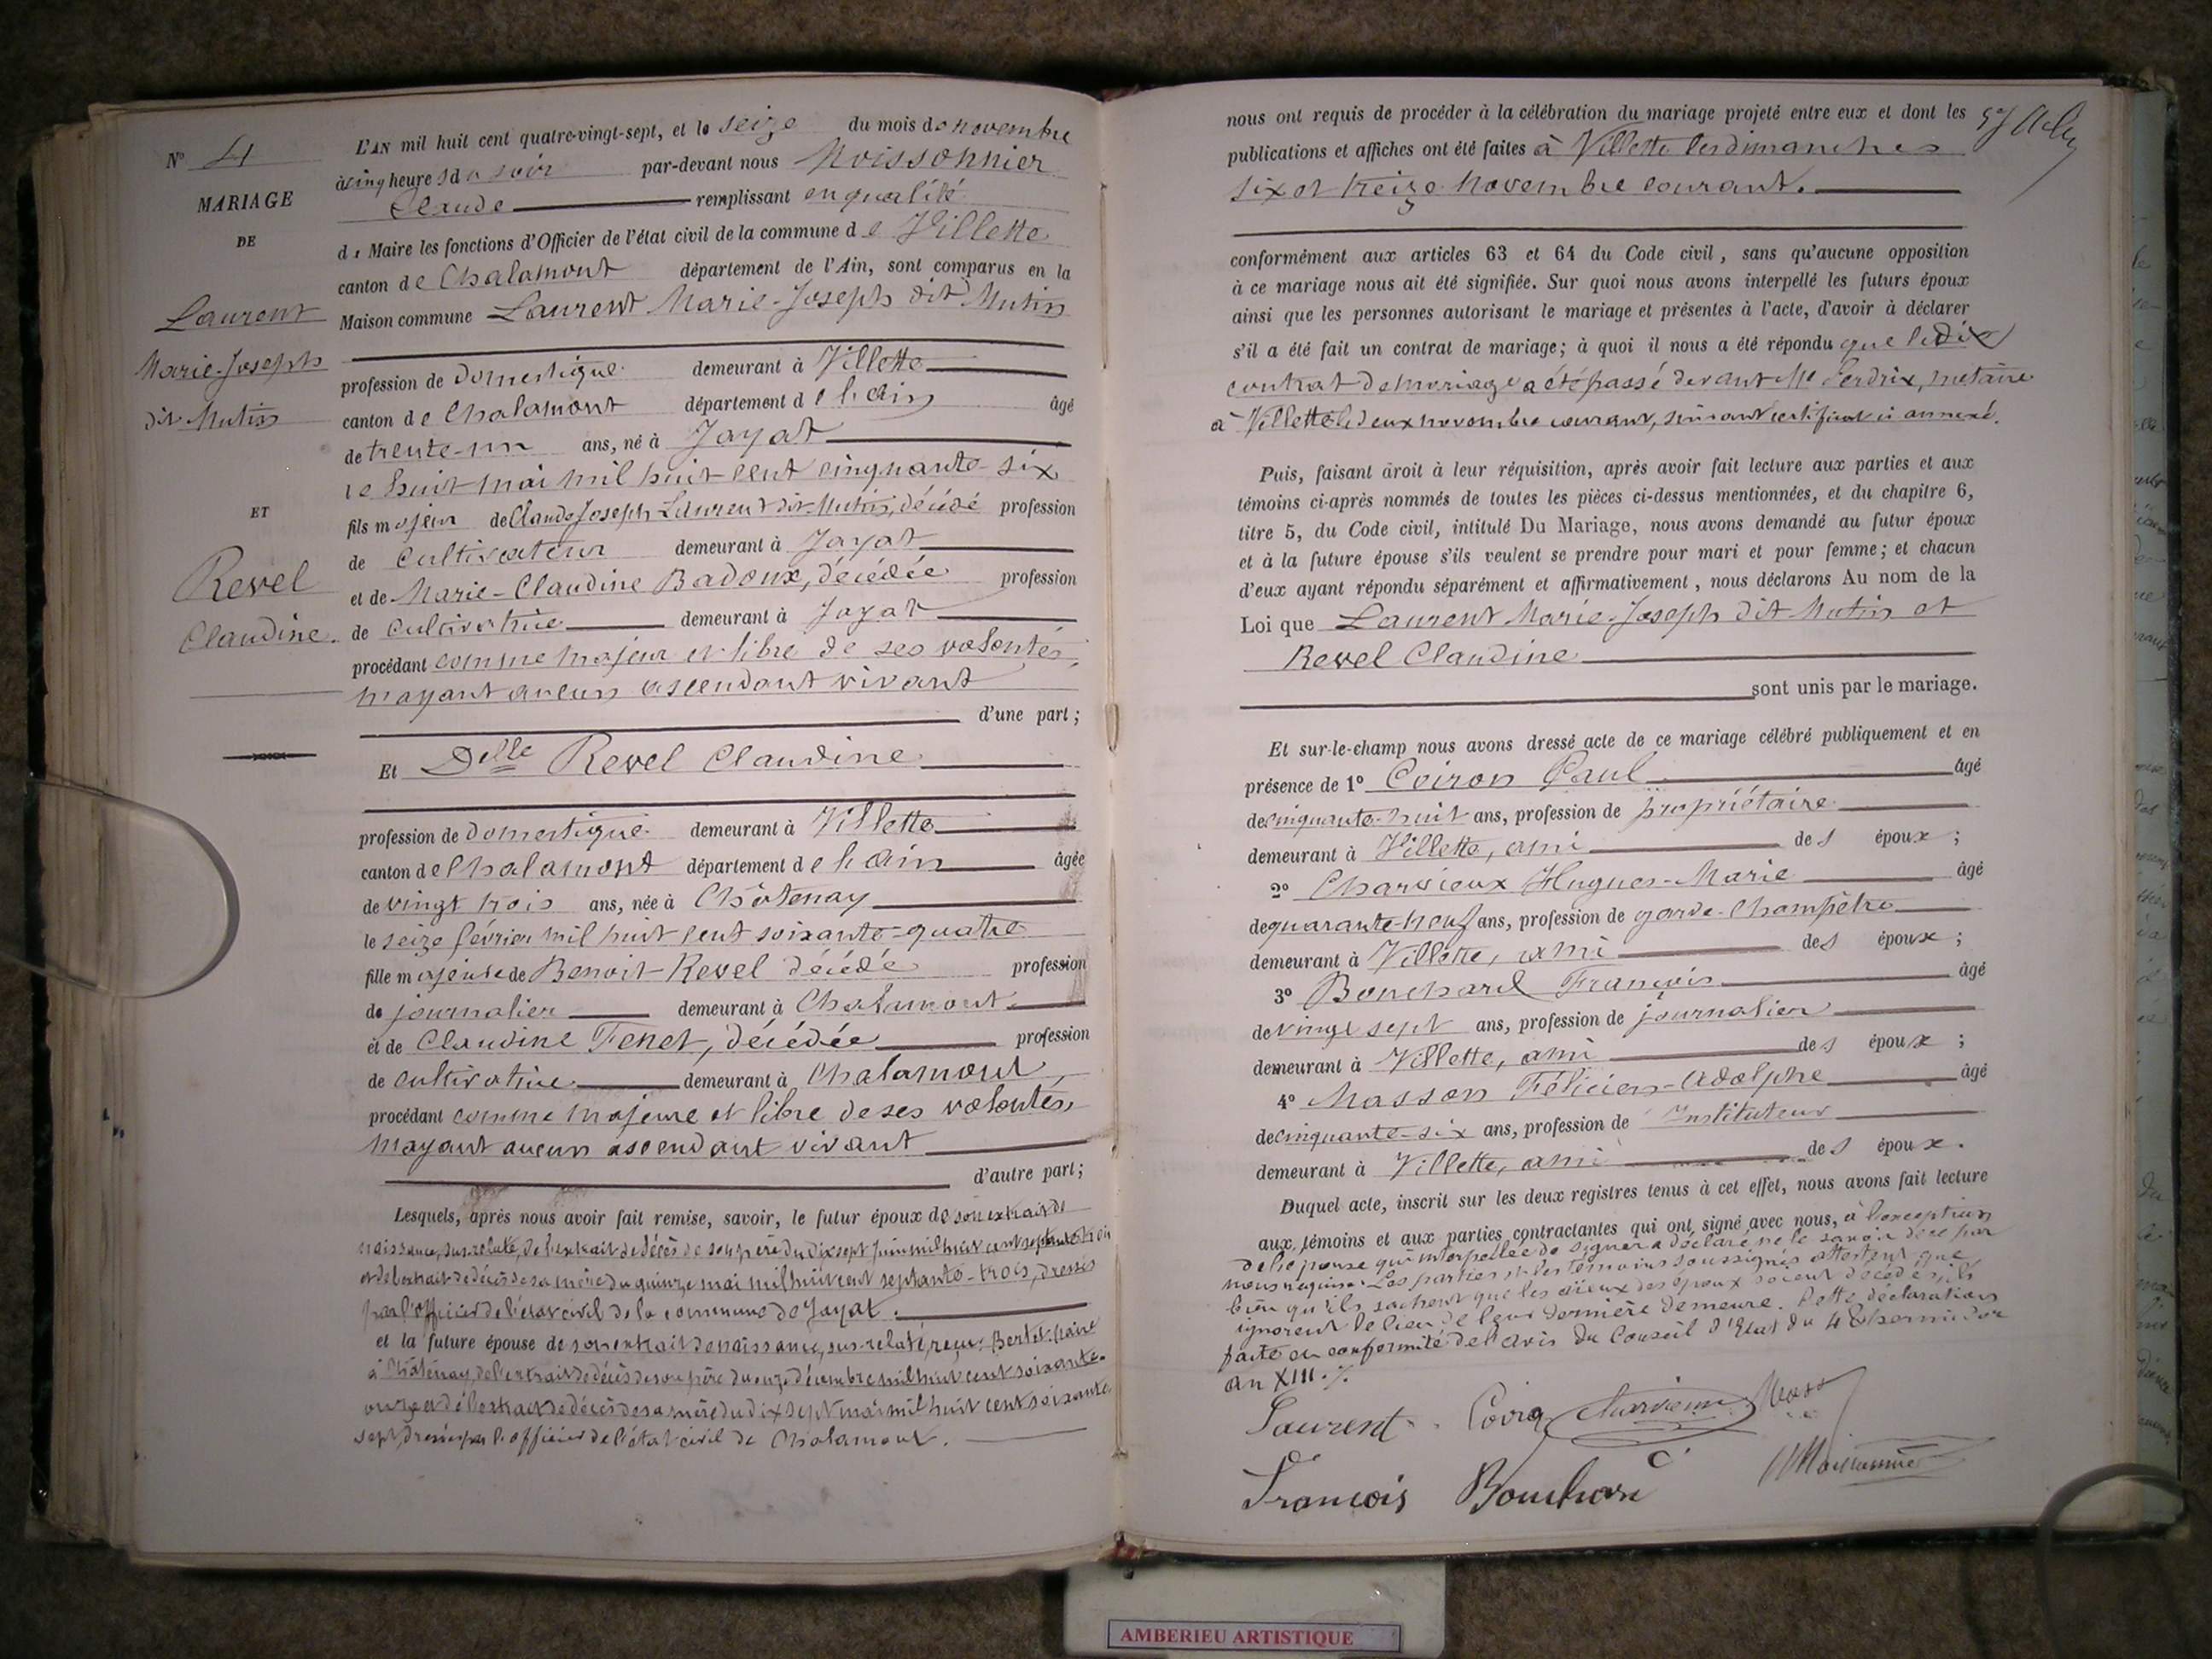 N° 4
MARIAGE
DE
Laurent
Marie-Joseph
dit Mutin
ET
Revel
Claudine.
L'AN mil huit cent quatre-vingt-sept, et le seize du mois de novembre
à cinq heures du soir par-devant nous Moissonnier
Claude remplissant en qualité
de Maire les fonctions d'Officier de l'état civil de la commune de Villette
canton de Chalamont département de l'Ain, sont comparus en la
Maison commune Laurent Marie-Joseph dit Mutin
profession de Domestique demeurant à Villette
canton de Chalamont département de l'Ain âgé
de trente-un ans, né à Jayat
le huit mai mil huit cent cinquante-six
fils majeur de Claude Joseph Laurent dit Mutin, décédé profession
de Cultivateur demeurant à Jayat
et de Marie-Claudine Badoux, décédée profession
de Cultivatrice demeurant à Jayat
procédant comme majeur et libre de ses volontés,
n'ayant aucun ascendant vivant
d'une part;
Et Delle Revel Claudine
profession de Domestique demeurant à Villette
canton de Chalamont département de l'Ain âgée
de vingt trois ans, née à Châtenay
le seize février mil huit cent soixante-quatre
fille majeure de Benoit Revel décédé profession
de journalier demeurant à Chalamont
et de Claudine Tenet, décédée profession
de cultivatrice demeurant à Chalamont,
procédant comme majeure et libre de ses volontés,
n'ayant aucun ascendant vivant
d'autre part;
Lesquels, après nous avoir fait remise, savoir, le futur époux de son extrait de
naissance, sus relaté, de l'extrait de décès de son père du dix sept juin mil huit cent septante
et de l'extrait de décès de sa mère du quinze mai mil huit cent septante-trois, dressés
par l'officier de l'état civil de la commune de Jayat.
et la future épouse de son extrait de naissance, sus-relaté, reçu
à Châtenay, de l'extrait de décès de son père du onze décembre mil huit cent soixante-
onze et de l'extrait de décès de sa mère du dix sept mai mil huit cent soixante
sept, dressés par l'officier de l'état civil de Chalamont.
nous ont requis de procéder à la célébration du mariage projeté entre eux et dont les
publications et affiches ont été faites à Villette les dimanches
six et treize novembre courant.
conformément aux articles 63 et 64 du Code civil, sans qu'aucune opposition
à ce mariage nous ait été signifiée. Sur quoi nous avons interpellé les futurs époux
ainsi que les personnes autorisant le mariage et présentes à l'acte, d'avoir à déclarer
s'il a été fait un contrat de mariage; à quoi il nous a été répondu que ledit
contrat de mariage a été passé devant Me Perdrix, notaire
à Villette le deux novembre courant, suivant certificat ci annexé.
Puis, faisant droit à leur réquisition, après avoir fait lecture aux parties et aux
témoins ci-après nommés de toutes les pièces ci-dessus mentionnées, et du chapitre 6,
titre 5, du Code civil, intitulé Du Mariage, nous avons demandé au futur époux
et à la future épouse s'ils veulent se prendre pour mari et pour femme; et chacun
d'eux ayant répondu séparément et affirmativement, nous déclarons Au nom de la
Loi que Laurent Marie-Joseph dit Mutin et
Revel Claudine
sont unis par le mariage.
Et sur-le-champ nous avons dressé acte de ce mariage célébré publiquement et en
présence de 1° Coiron Paul âgé
de cinquante-huit ans, profession de propriétaire
demeurant à Villette, ami des époux;
2° Charvieux Hugues-Marie âgé
de quarante-neuf ans, profession de garde-Champêtre
demeurant à Villette, ami des époux;
3° Bouchard François âgé
de vingt sept ans, profession de journalier
demeurant à Villette, ami des époux;
4° Masson Félicien-Adolphe âgé
de cinquante-six ans, profession de Instituteur
demeurant à Villette, ami des époux.
Duquel acte, inscrit sur les deux registres tenus à cet effet, nous avons fait lecture
aux témoins et aux parties contractantes qui ont signé avec nous, à l'exception
de l'épouse qui interpellée de signer a déclaré ne le savoir de ce par
nous requise. Les parties et les témoins soussignés attestent que
bien qu'ils sachent que les aïeux des époux soient décédés, ils
ignorent le lieu de leur dernière demeure. Cette déclaration
faite en conformité de l'avis du Conseil d'Etat du 4 thermidor
an XIII.
Laurent Coiron Charvieux Masson
François Bouchard Moissonnier
AMBERIEU ARTISTIQUE